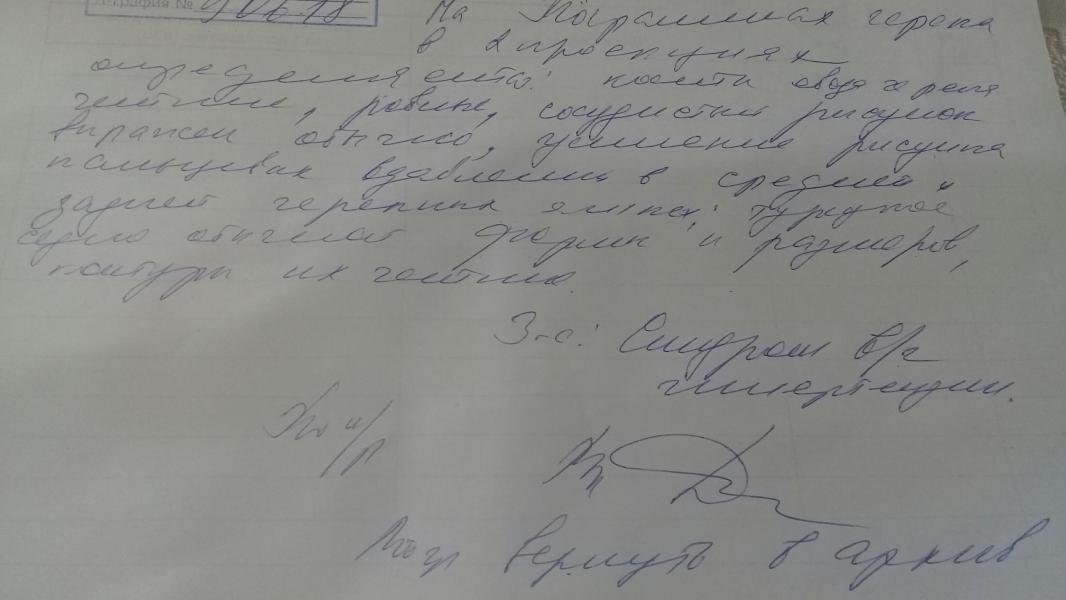 графия № 90618
На Кограммах черепа
в 2 проекциях
определяется: кости свода черепа
четкие, ровные, сосудистый рисунок
выражен обычно, усиление рисунка
пальцевых вдавлений в средней и
задней черепных ямках; турецкое
седло обычной формы и размеров,
контуры их четкие.
З-е: Синдром в/ч
гипертензии.
вернуть в архив